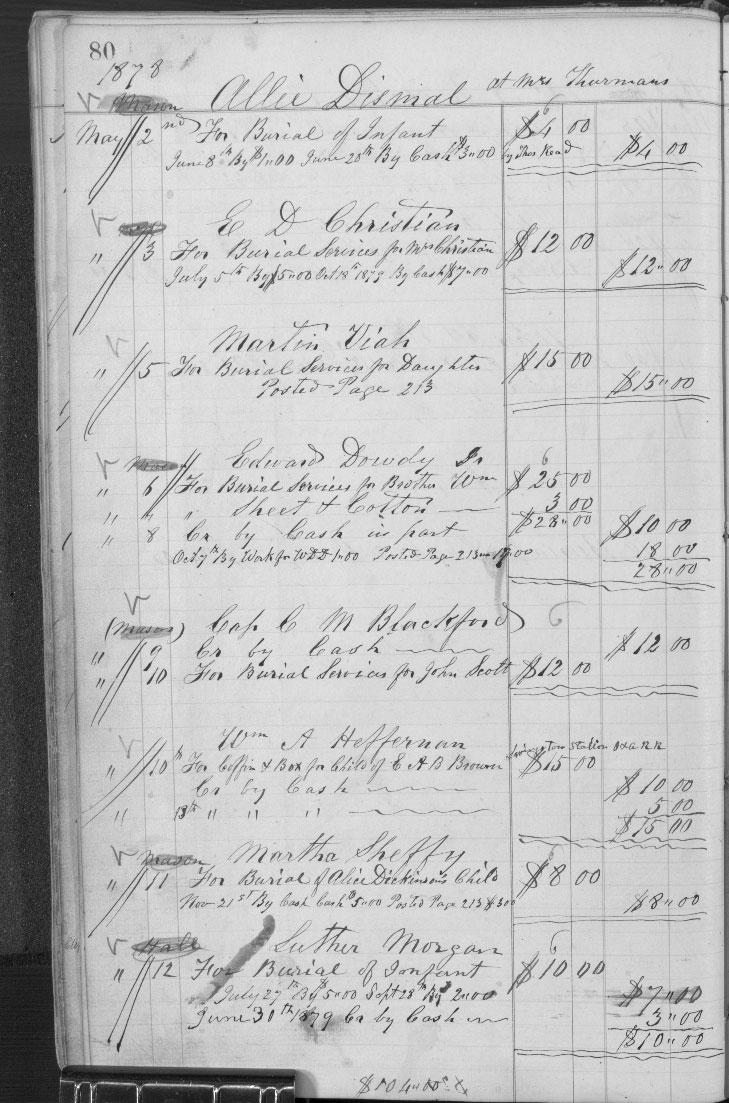 80
1878
Mason Allie Dismal at Mrs Thurmans
May 2nd For Burial of Infant $4 00
June 8th By $1"00 June 20th By Cash $3"00 by Thos Read $4 00
E D Christian
" 3 For Burial Services for Mrs Christian $12 00
July 5th By $5"00 Oct 18th 1879 By Cash $7"00 $12"00
Martin Viah
" 5 For Burial Services for Daughter $15 00
Posted Page 213 $15"00
Edward Dowdy Jr 6
" 6 For Burial Services for Brother Wm $25 00
" " " Sheet & Cotton 3 00
" 8 Cr by Cash in part $28"00 $10 00
Oct 7th By Work for WDD 1"00 Posted Page 213 17"00 18 00
28"00
(Mason) Cap C M Blackford 6
" 9 Cr by Cash $12 00
" 10 For Burial Services for John Scott $12 00
Wm A Heffernan Station O & A RR
" 10th For Coffin & Box for Child of E A B Brown $15 00
Cr by Cash $10 00
" 13th " " " 5 00
$15 00
Mason Martha Sheffy 6
" 11 For Burial of Alice Dickinson's Child $8 00
Nov 21st By Cash Cash $5"00 Posted Page 213 $3 00 $8"00
Hall Luther Morgan 6
" 12 For Burial of Infant $10 00
July 27th By $5"00 Sept 28th By 2"00 $7"00
June 30th 1879 Cr by Cash 3"00
$10"00
$104"00